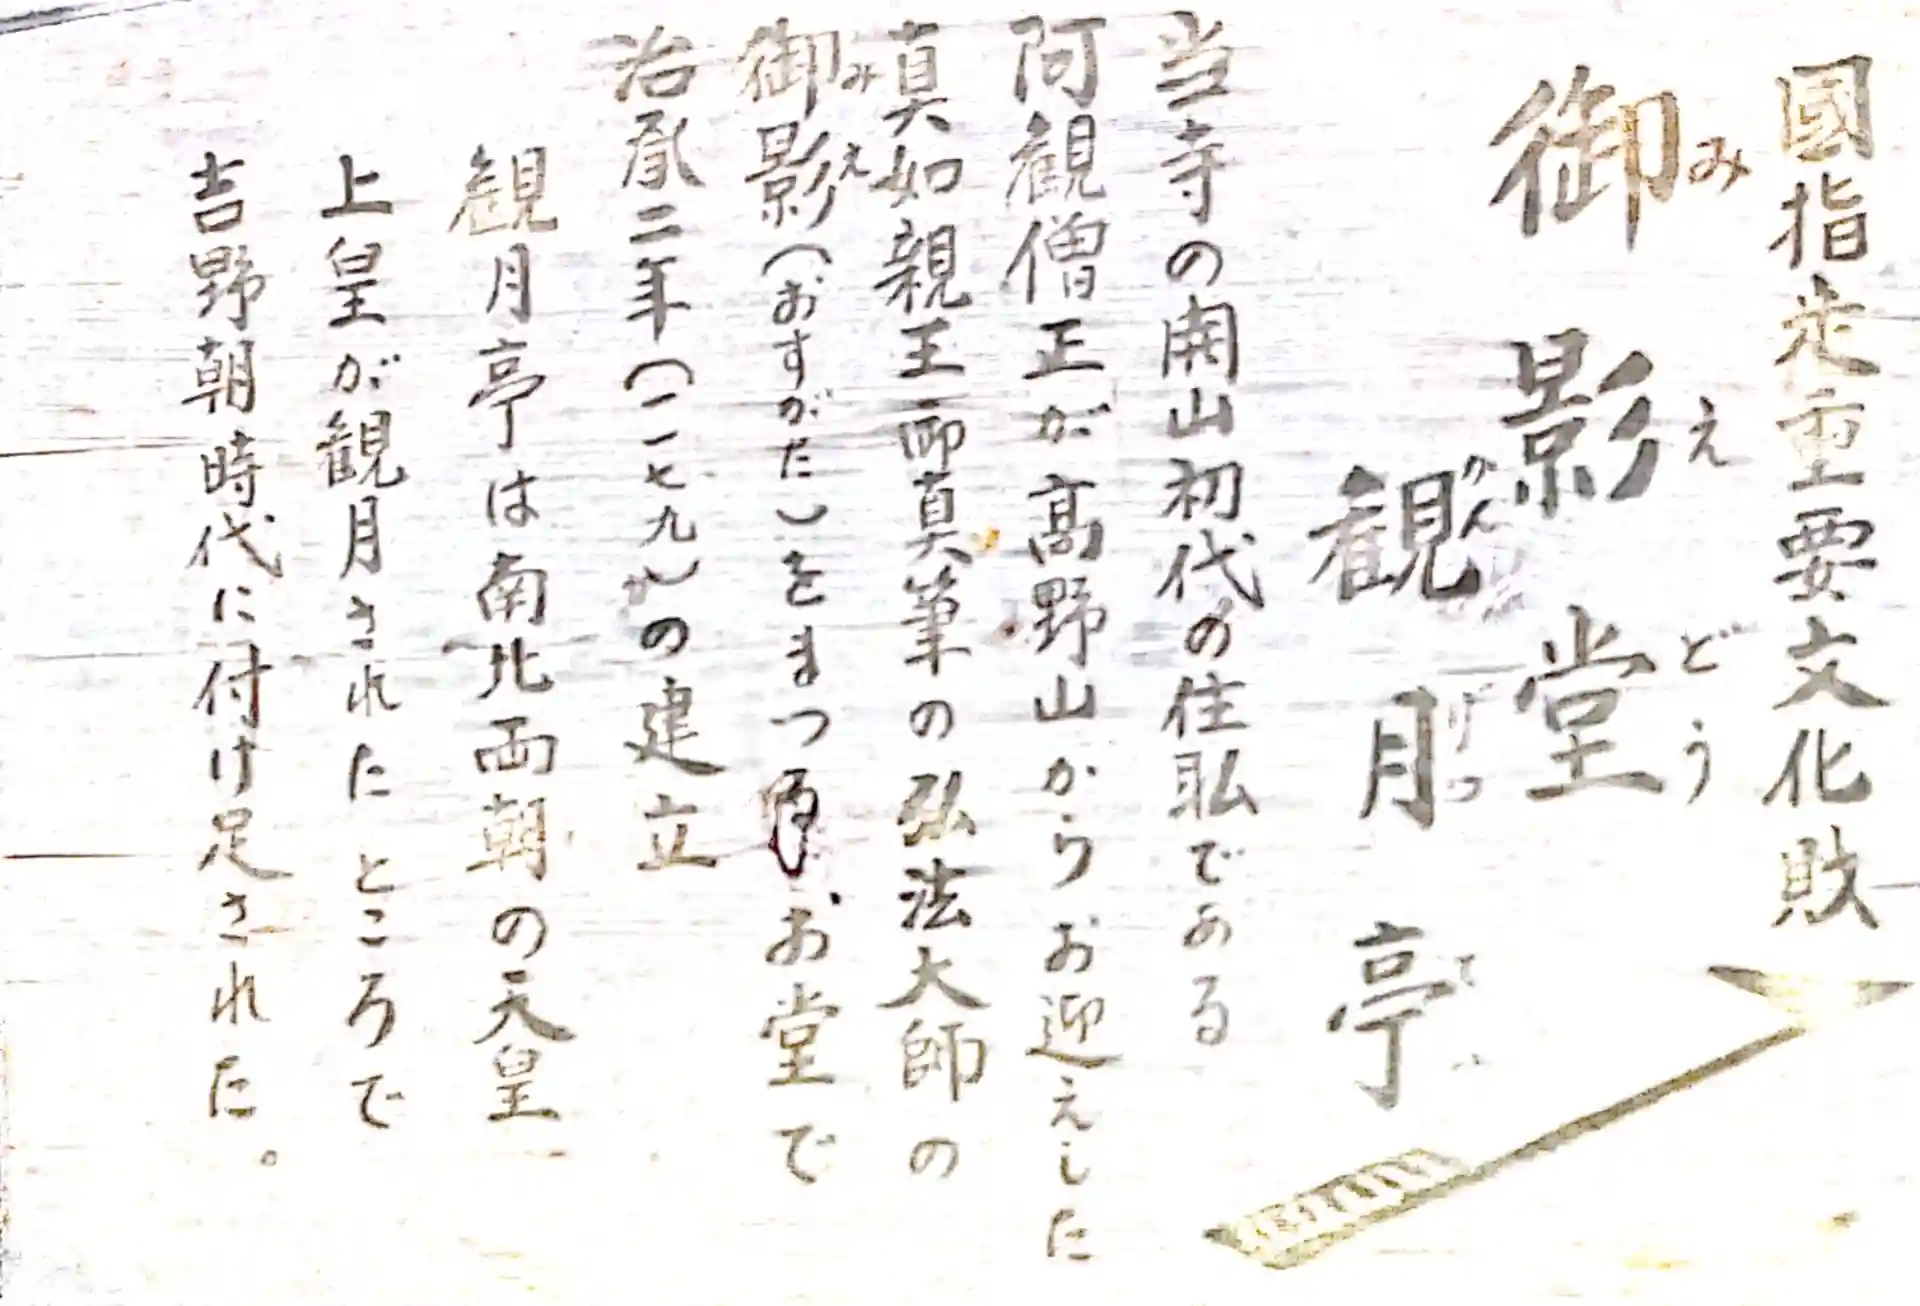 國指定重要文化財
御影堂
みえどう
観月亭
かんげつてい
当寺の開山初代の住職である
阿観僧正が髙野山からお迎えした
真如親王御真筆の弘法大師の
御影(おすがた)をまつ お堂で
みえ
治承二年(一一七九)の建立
観月亭は南北両朝の天皇
上皇が観月されたところで
吉野朝時代に付け足された。